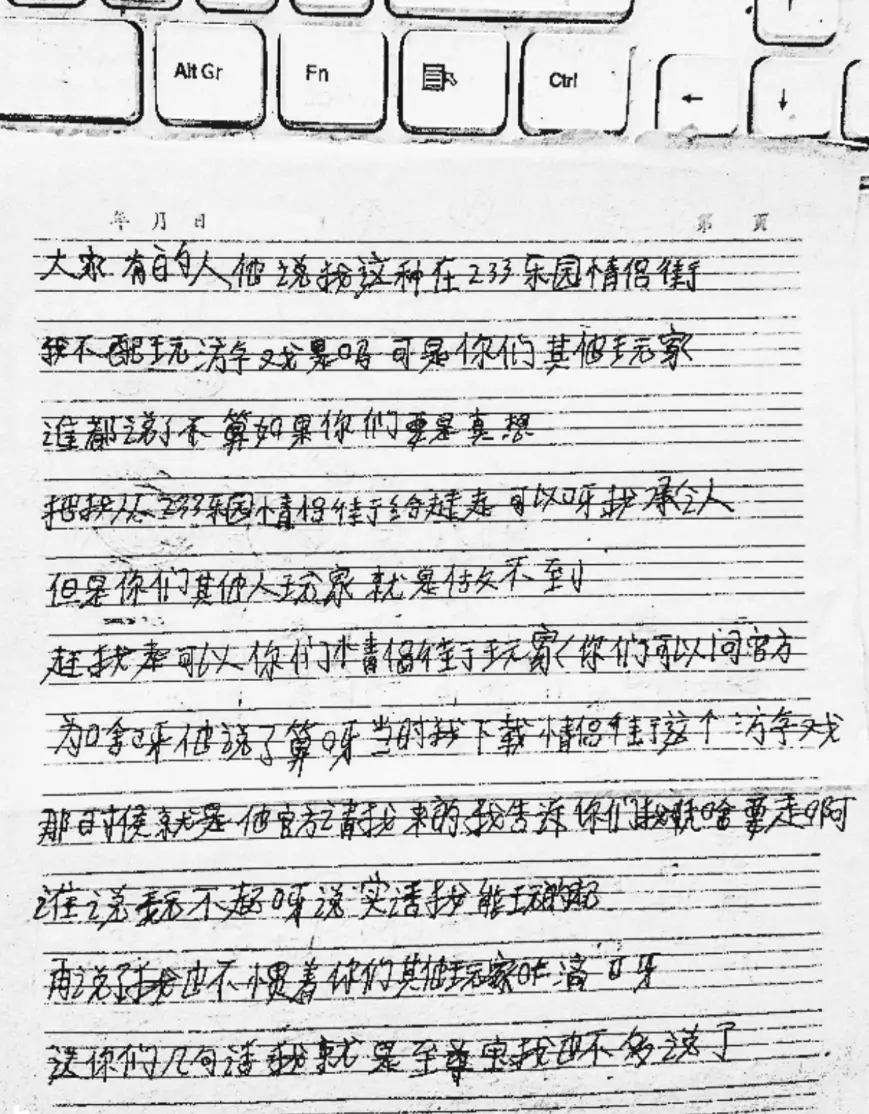 Alt Gr Fn Ctrl ← ↓
年 月 日 第 页
大家有的人他说我这种在233乐园情侣街
我不配玩游戏是吗可是你们其他玩家
谁都说了不算如果你们要是真想
把我从233乐园情侣街给赶走可以呀我承认
但是你们其他人玩家就是做不到
赶我走可以你们情侣街玩家你们可以问官方
为啥呀他说了算呀当时我下载情侣街这个游戏
那时候就是他官方请我来的我告诉你们我凭啥要走啊
谁说我玩不起呀说实话我能玩的起
再说了我也不惯着你们其他玩家咋滴呀
送你们几句话我就是至尊宝我也不多说了